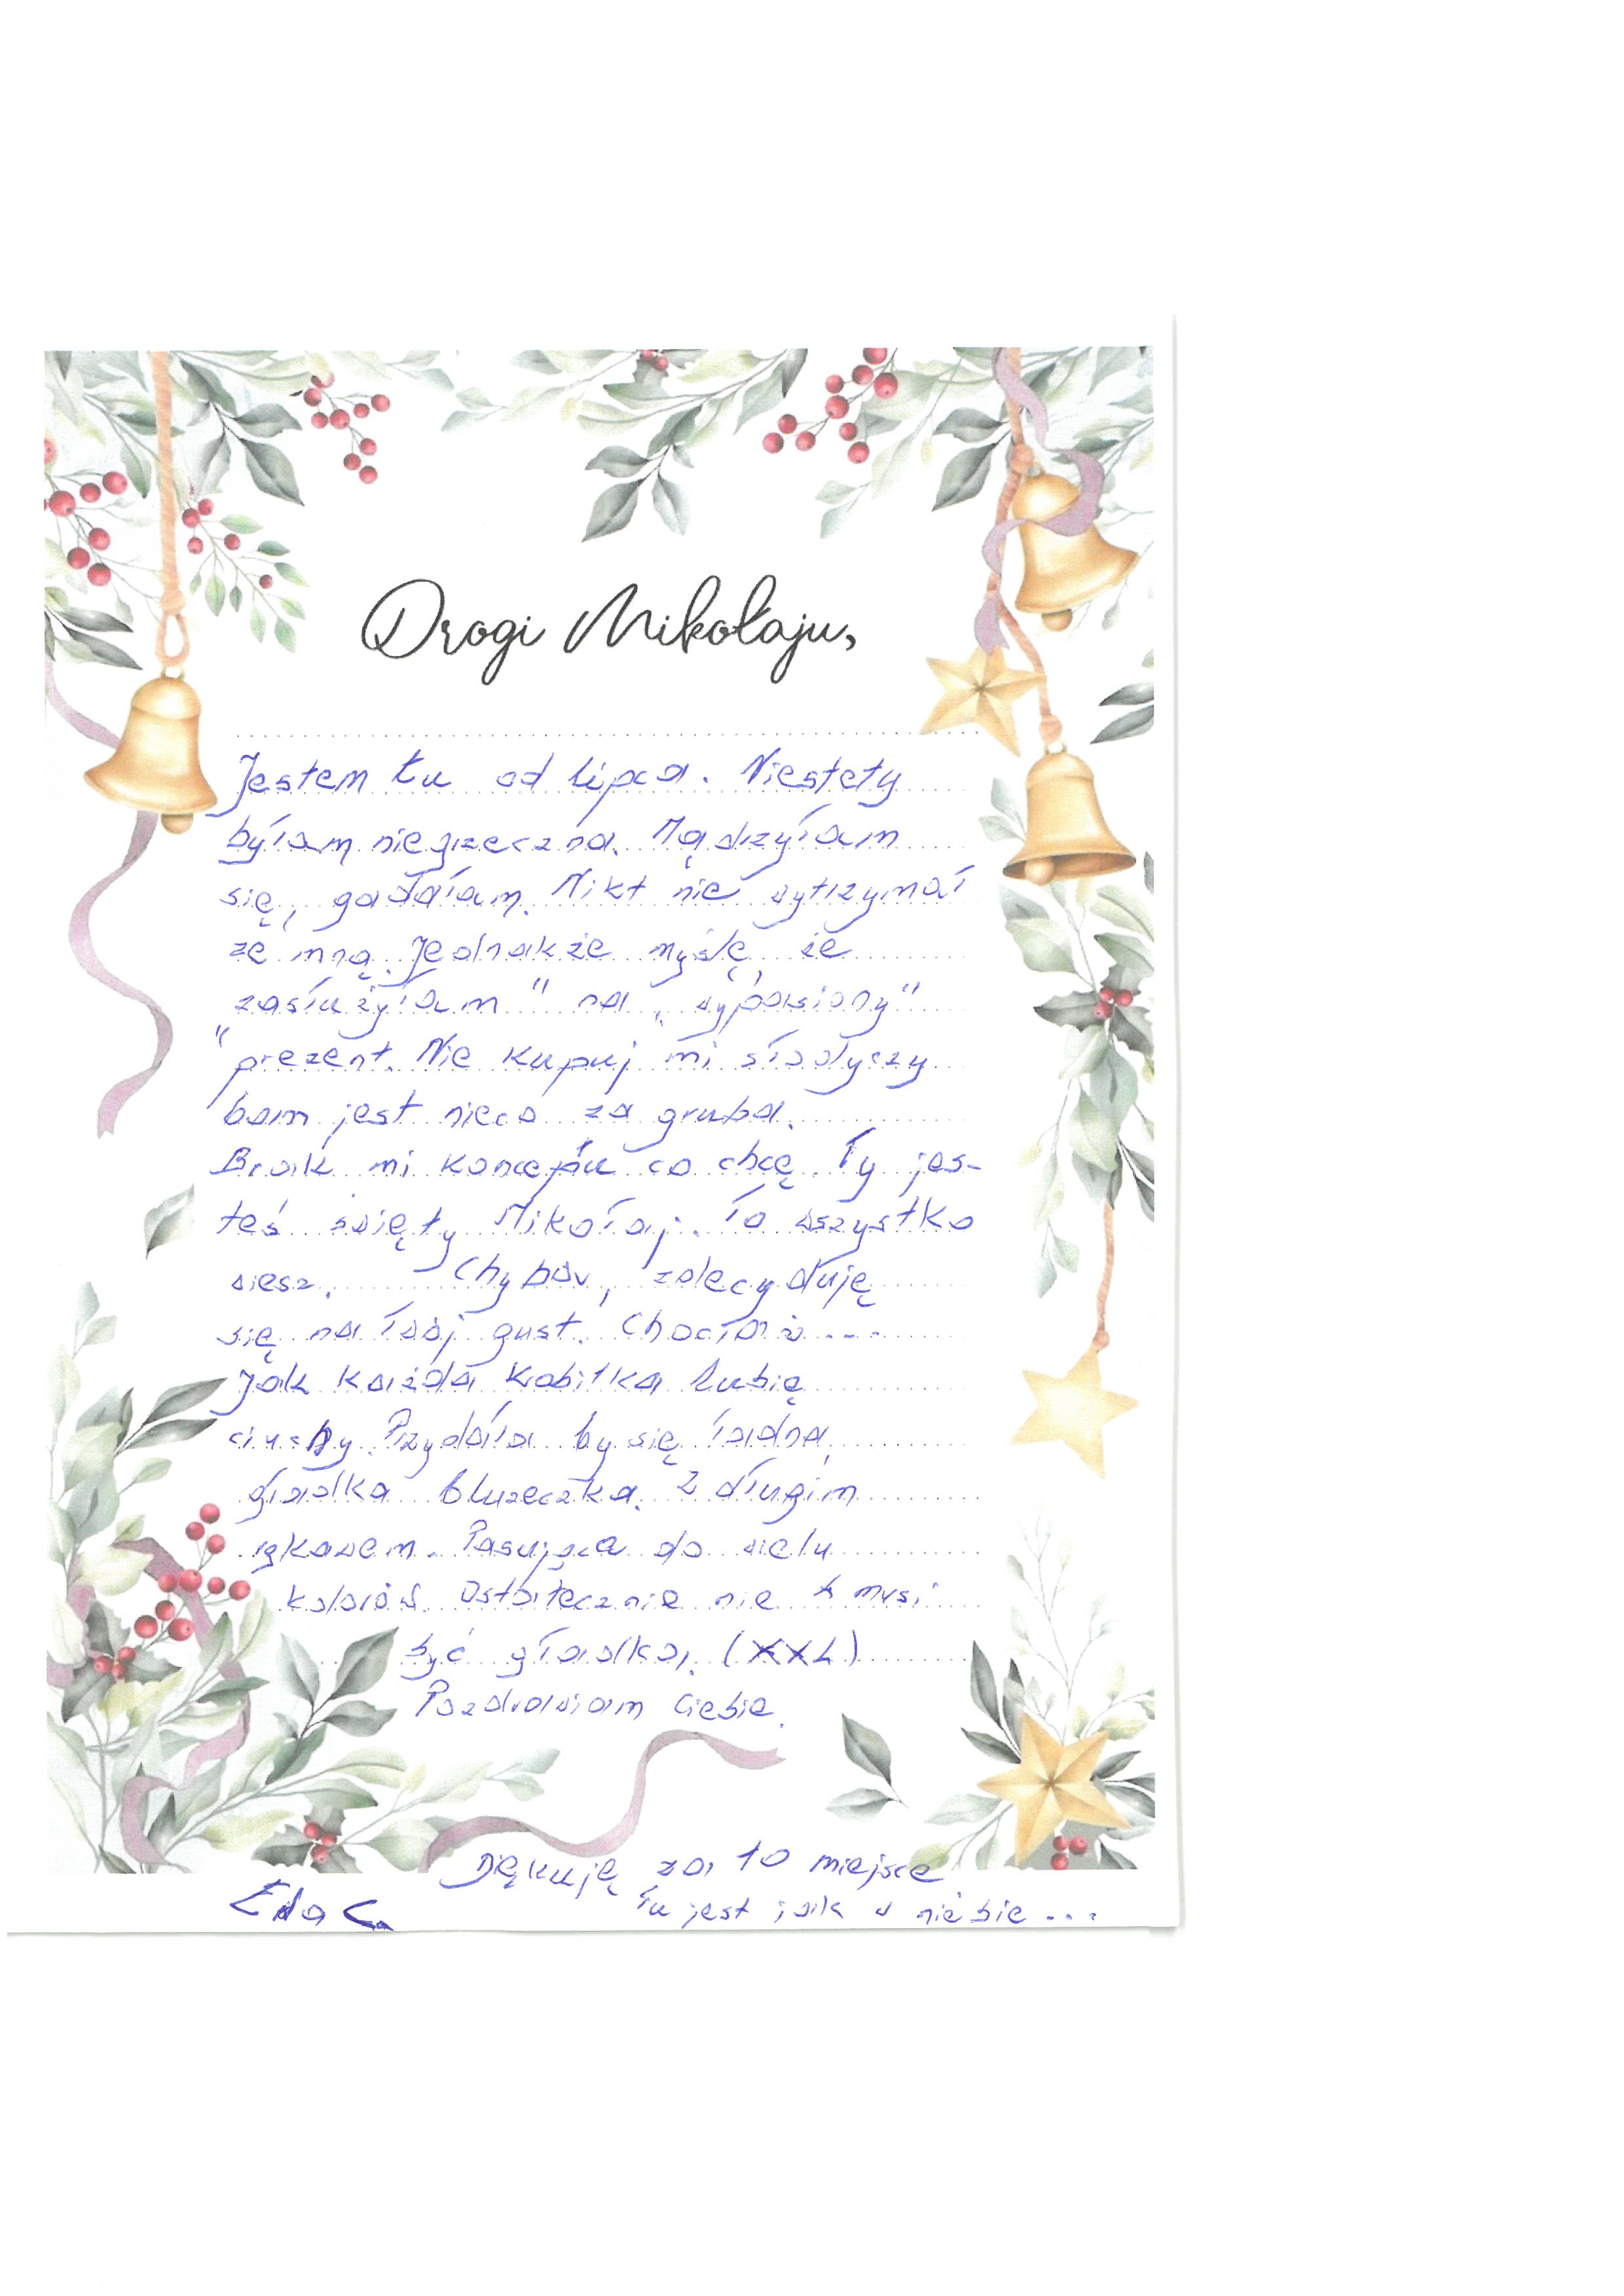 Drogi Mikołaju,
Jestem tu od lipca. Niestety
byłam niegrzeczna. Mądrzyłam
się, gadałam. Nikt nie wytrzymał
ze mną. Jednakże myślę, że
zasłużyłam" na „wypasiony"
"prezent. Nie kupuj mi słodyczy
bom jest nieco za gruba.
Brak mi konceptu co chcę. Ty jes-
teś święty Mikołaj. To wszystko
wiesz. Chyba, zdecyduję
się na Twój gust. Chociaż ....
Jak każda kobitka lubię
ciuchy. Przydała by się ładna,
gładka bluzeczka. Z długim
rękawem. Pasująca do wielu
kolorów. Ostatecznie nie musi
być gładka. (XXL)
Pozdrawiam Ciebie.
Dziękuję za to miejsce
Eda C.
Tu jest jak w niebie ...